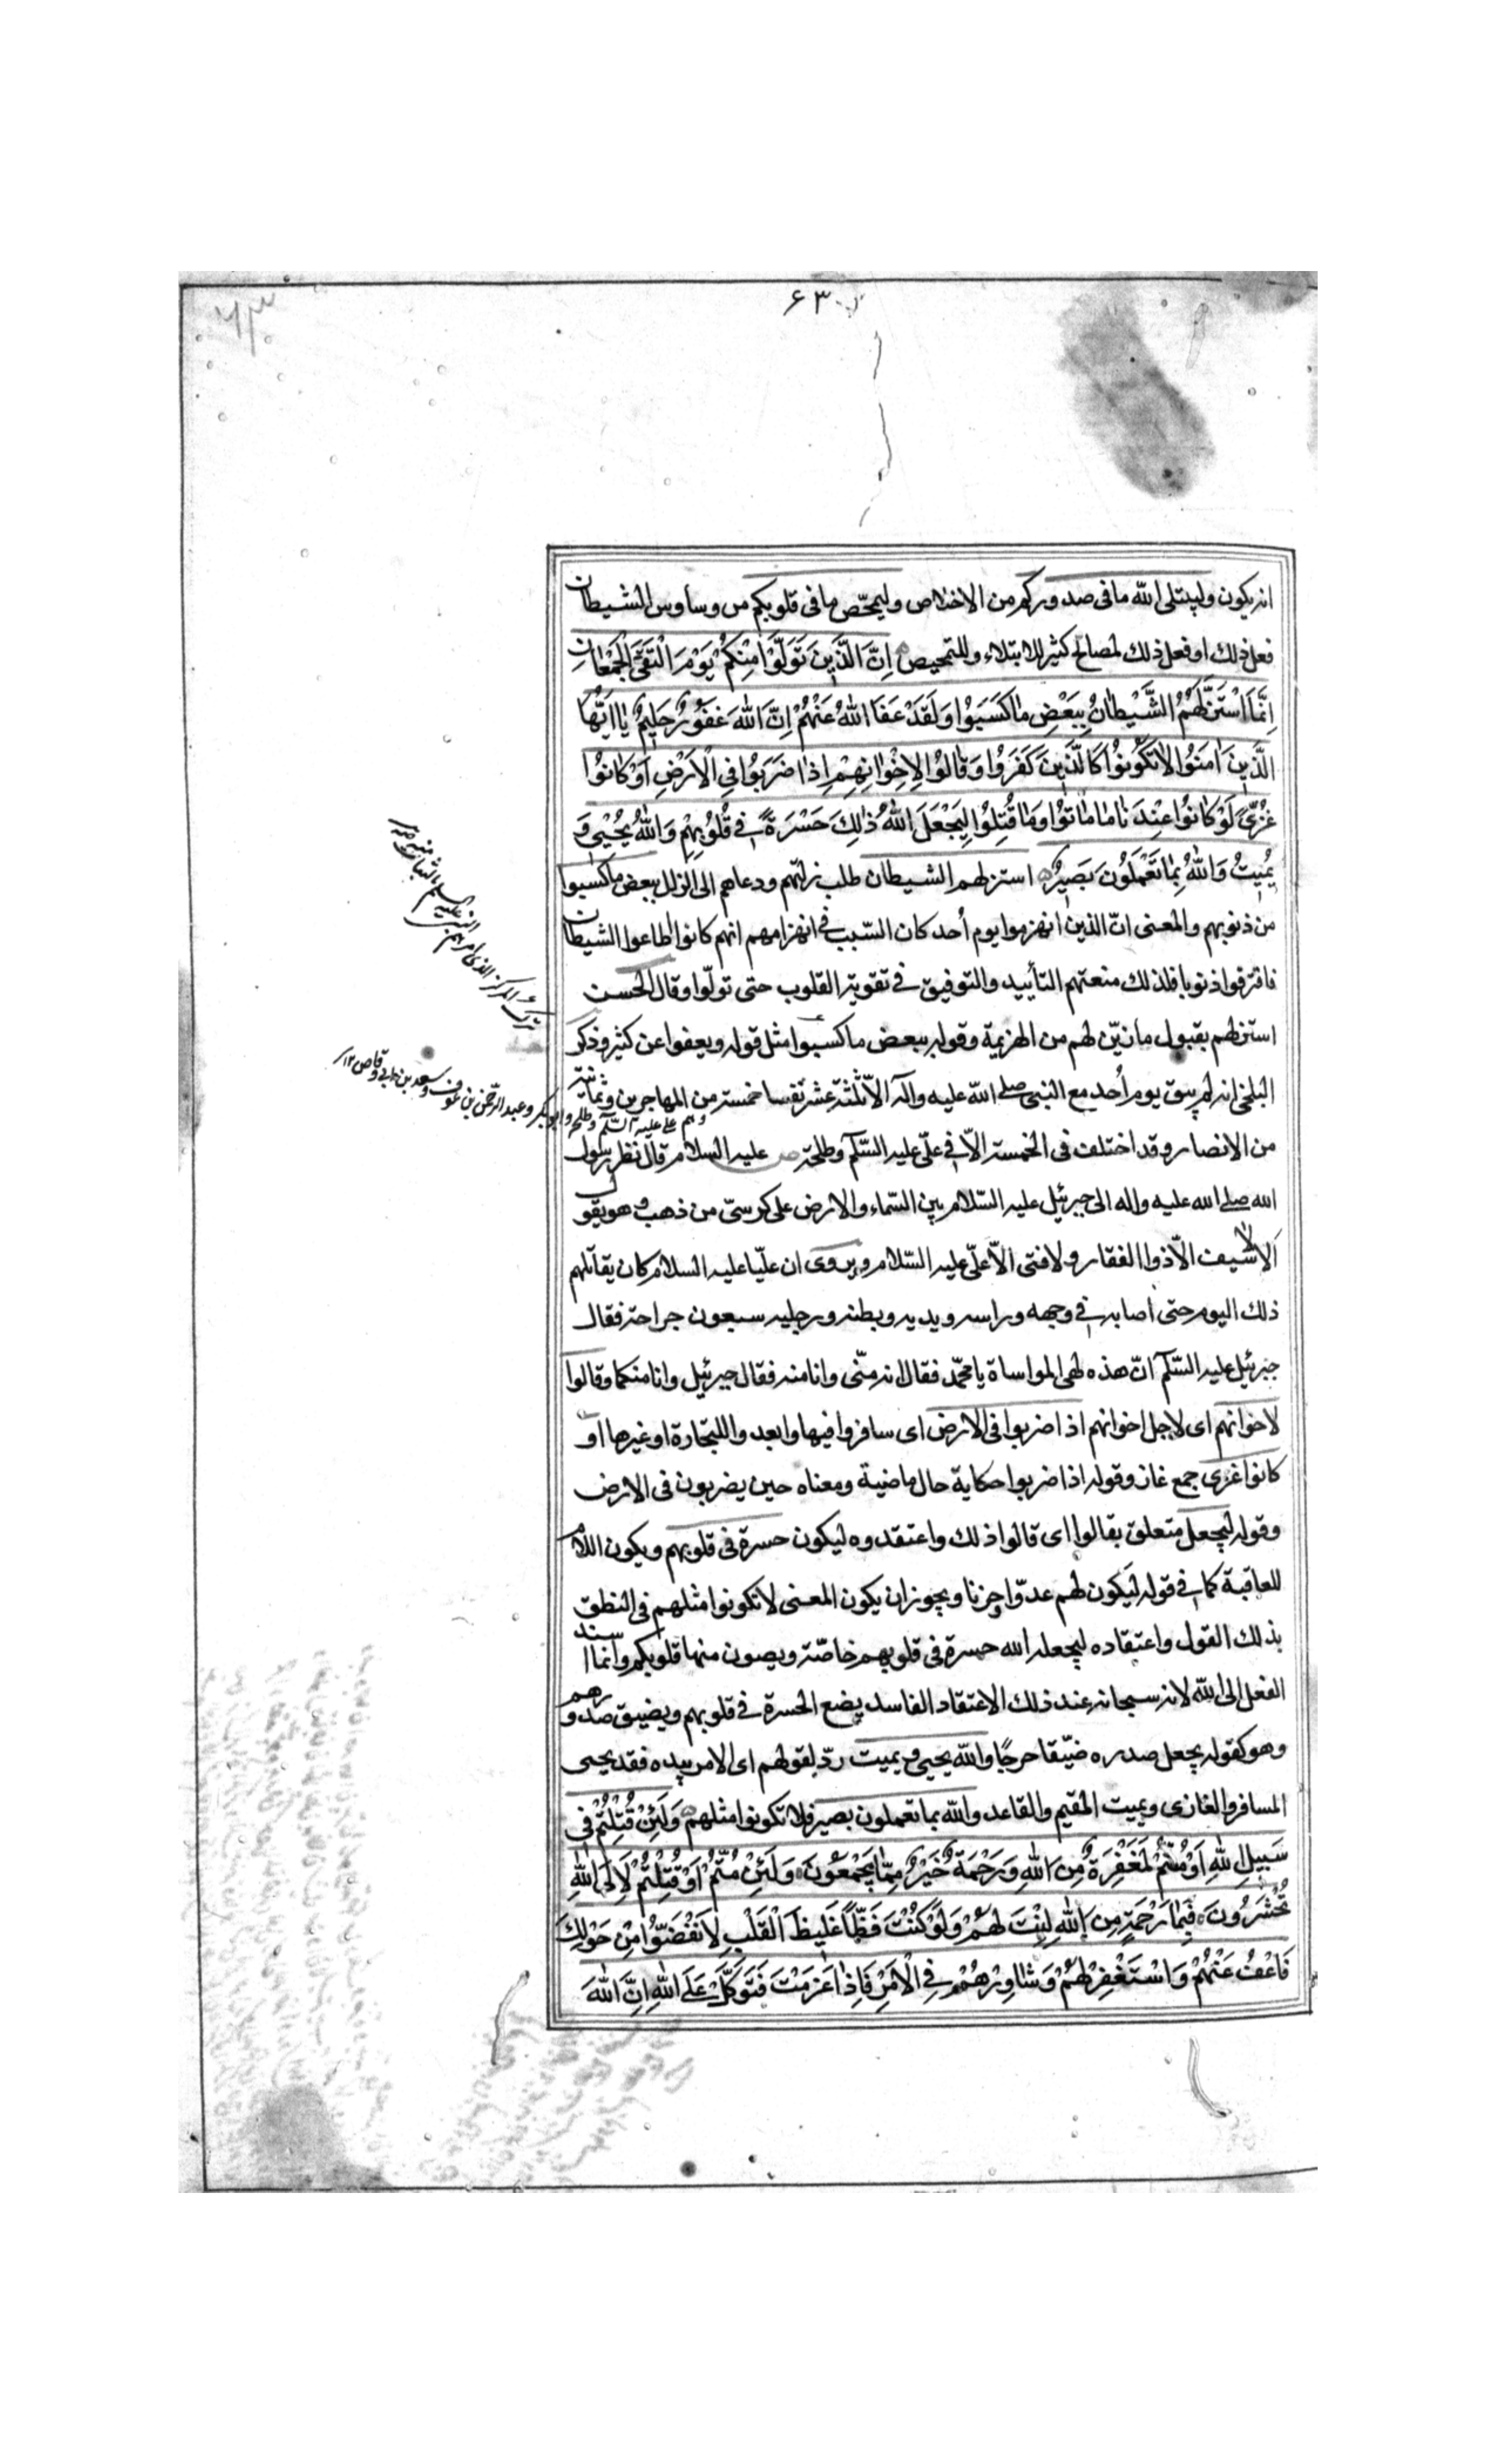 ۶۳
۶۳
انه يكون وليبتلي الله ما في صدوركم من الاخلاص وليمحّص ما في قلوبكم من وساوس الشيطان
فعل ذلك او فعل ذلك لمصالح كثير للابتلاء وللتمحيص اِنَّ الَّذِينَ تَوَلَّوْا مِنْكُمْ يَوْمَ الْتَقَى الْجَمْعَانِ
اِنَّمَا اسْتَزَلَّهُمُ الشَّيْطَانُ بِبَعْضِ مَا كَسَبُوا وَلَقَدْ عَفَا اللهُ عَنْهُمْ اِنَّ اللهَ غَفُورٌ حَلِيمٌ يَا اَيُّهَا
الَّذِينَ اٰمَنُوا لَا تَكُونُوا كَالَّذِينَ كَفَرُوا وَقَالُوا لِاِخْوَانِهِمْ اِذَا ضَرَبُوا فِي الْاَرْضِ اَوْ كَانُوا
غُزًّى لَوْ كَانُوا عِنْدَنَا مَا مَاتُوا وَمَا قُتِلُوا لِيَجْعَلَ اللهُ ذٰلِكَ حَسْرَةً فِي قُلُوبِهِمْ وَاللهُ يُحْيِي وَ
يُمِيتُ وَاللهُ بِمَا تَعْمَلُونَ بَصِيرٌ استزلهم الشيطان طلب زلتهم ودعاهم الى الزلل ببعض ما كسبوا
من ذنوبهم والمعنى انّ الذين انهزموا يوم أحد كان السّبب في انهزامهم انهم كانوا اطاعوا الشيطان
فاقترفوا ذنوبا فلذلك منعتهم التأييد والتوفيق في تقوية القلوب حتى تولّوا وقال الحسن
استزلهم بقبول ما زيّن لهم من الهزيمة وقوله ببعض ما كسبوا مثل قوله ويعفوا عن كثير وذكر
البلخي انه لم يبق يوم أحد مع النبي صلى الله عليه وآله الاّ ثلثة عشر نفسا خمسة من المهاجرين وثمانية
من الانصار وقد اختلف في الخمسة الاّ في علّي عليه السّلم وطلحة عليه السلام قال نظر رسول
الله صلى الله عليه واله الى جبرئيل عليه السّلام بين السّماء والارض على كرسيّ من ذهب وهو يقول
الا لا سيف الاّ ذوالفقار ولا فتى الاّ علّي عليه السّلام ويروى ان عليّا عليه السلام كان يقاتلهم
ذلك اليوم حتى أصابه في وجهه وراسه ويديه وبطنه ورجليه سبعون جراحة فقال
جبرئيل عليه السّلم انّ هذه لهي المواساة يا محمّد فقال انه منّي وانا منه فقال جبرئيل وانا منكما وقالوا
لاخوانهم اى لاجل اخوانهم اذا ضربوا في الارض اى سافروا فيها وابعدوا للتجارة او غيرها او
كانوا غزى جمع غاز وقوله اذا ضربوا حكاية حال ماضية ومعناه حين يضربون في الارض
وقوله ليجعل متعلق بقالوا اى قالوا ذلك واعتقدوه ليكون حسرة في قلوبهم ويكون اللام
للعاقبة كما في قوله ليكون لهم عدوّا وحزنا ويجوز ان يكون المعنى لا تكونوا مثلهم في النطق
بذلك القول واعتقاده ليجعله الله حسرة في قلوبهم خاصّة ويصون منها قلوبكم وانما اسند
الفعل الى الله لانه سبحانه عند ذلك الاعتقاد الفاسد يضع الحسرة في قلوبهم ويضيق صدورهم
وهو كقوله يجعل صدره ضيّقا حرجًا والله يحيي ويميت ردّ لقولهم اى الامر بيده فقد يحيى
المسافر والغازى ويميت المقيم والقاعد والله بما تعملون بصير فلا تكونوا مثلهم وَلَئِنْ قُتِلْتُمْ فِي
سَبِيلِ اللهِ اَوْ مُتُّمْ لَمَغْفِرَةٌ مِنَ اللهِ وَرَحْمَةٌ خَيْرٌ مِمَّا يَجْمَعُونَ وَلَئِنْ مُتُّمْ اَوْ قُتِلْتُمْ لَاِلَى اللهِ
تُحْشَرُونَ فَبِمَا رَحْمَةٍ مِنَ اللهِ لِنْتَ لَهُمْ وَلَوْ كُنْتَ فَظًّا غَلِيظَ الْقَلْبِ لَانْفَضُّوا مِنْ حَوْلِكَ
فَاعْفُ عَنْهُمْ وَاسْتَغْفِرْ لَهُمْ وَشَاوِرْهُمْ فِي الْاَمْرِ فَاِذَا عَزَمْتَ فَتَوَكَّلْ عَلَى اللهِ اِنَّ اللهَ
بترك المركز الذى امرهم النبي عليه السلم بالثبات
وهم علي عليه السّلم وطلحة وابو بكر وعبد الرحمن بن عوف وسعد بن ابي وقاص ١٢